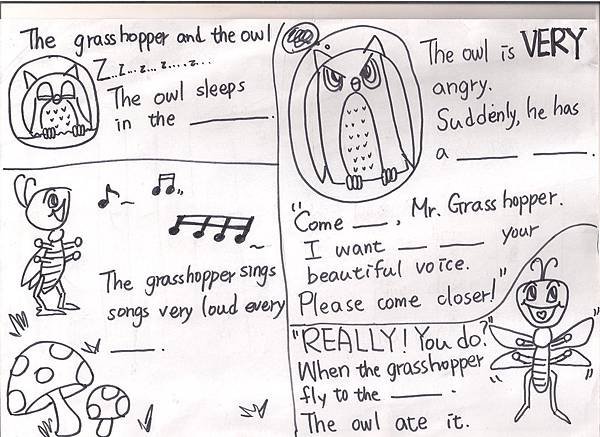 The grasshopper and the owl
Z.z...z...z....z....
The owl sleeps
in the ______.
The grasshopper sings
songs very loud every
____.
The owl is VERY
angry.
Suddenly, he has
a _____ _____.
"Come ___, Mr. Grasshopper.
I want ___ ____ your
beautiful voice.
Please come closer!"
"REALLY! You do?"
When the grasshopper
fly to the _____.
The owl ate it.